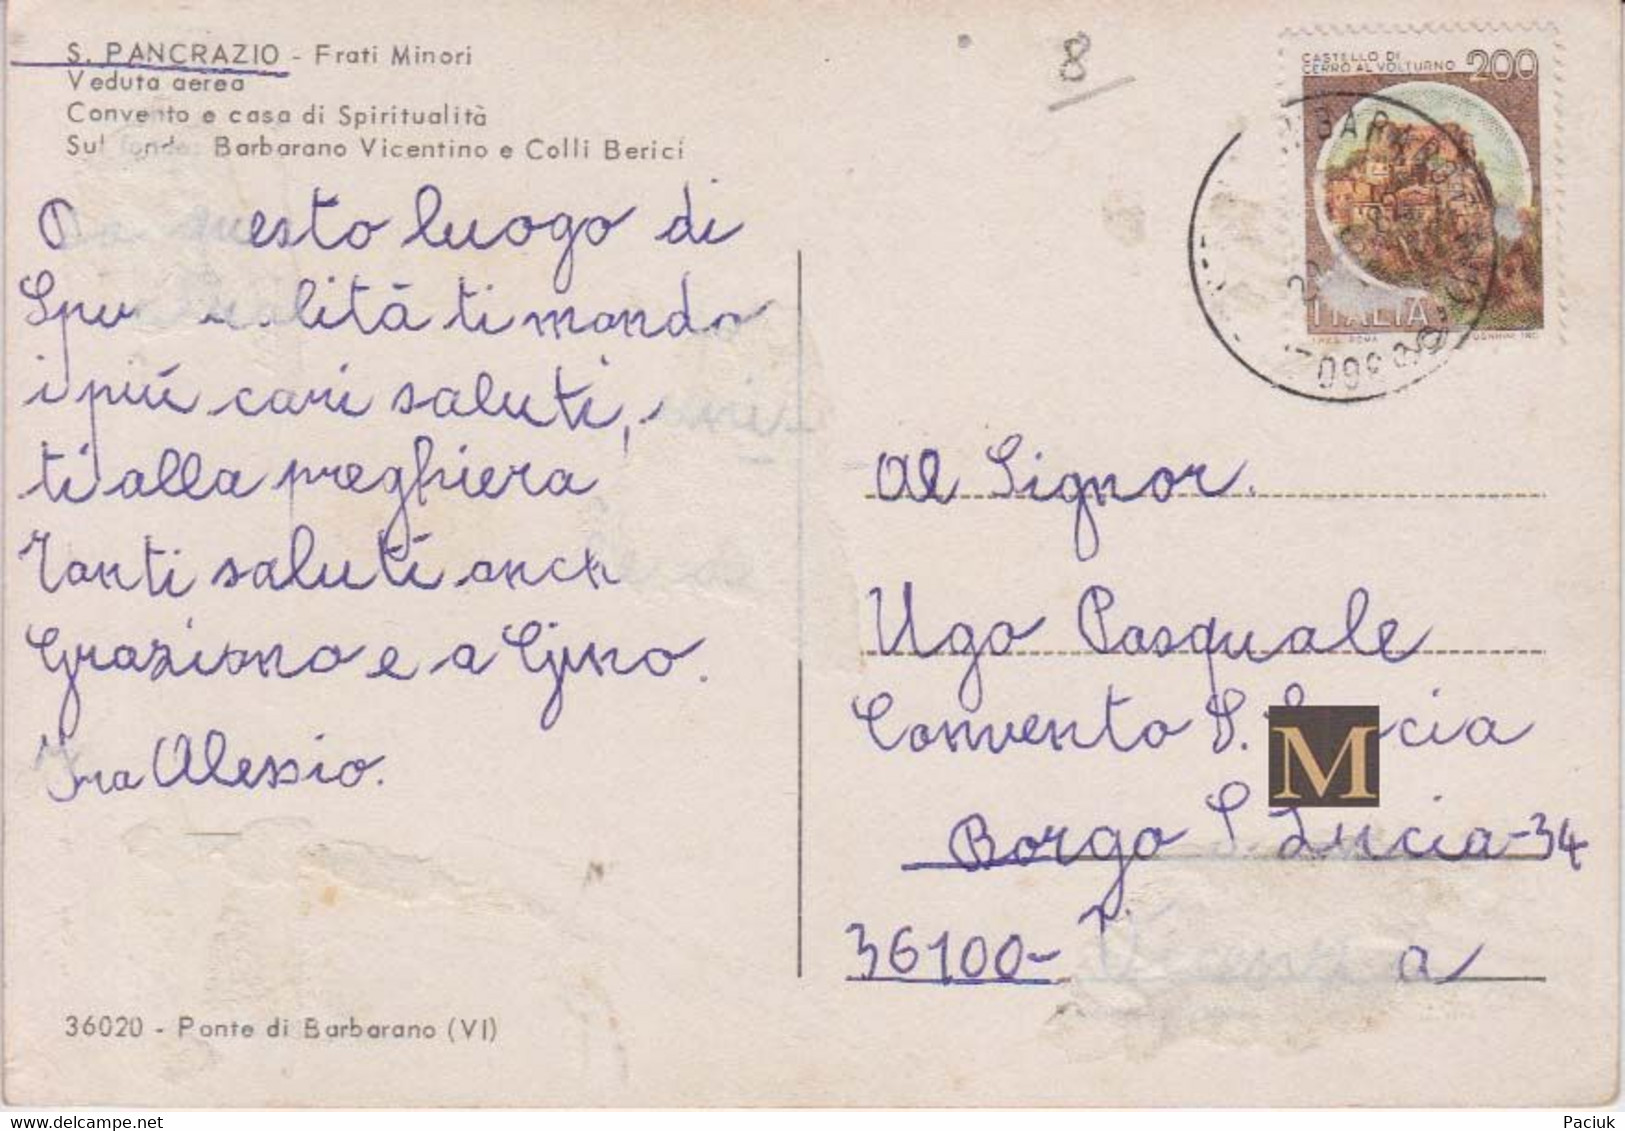 S. PANCRAZIO - Frati Minori
Veduta aerea
Convento e casa di Spiritualità
Sul fondo: Barbarano Vicentino e Colli Berici
Da questo luogo di
Spiritualità ti mando
i più cari saluti,
ti alla preghiera
Tanti saluti anch
Graziano e a Gino.
Fra Alessio.
36020 - Ponte di Barbarano (VI)
8
CASTELLO DI
CERRO AL VOLTURNO 200
ITALIA
I.P.Z.S. ROMA
Al Signor.
Ugo Pasquale
Convento S. Lucia
M
Borgo S. Lucia-34
36100- Vicenza
Paciuk